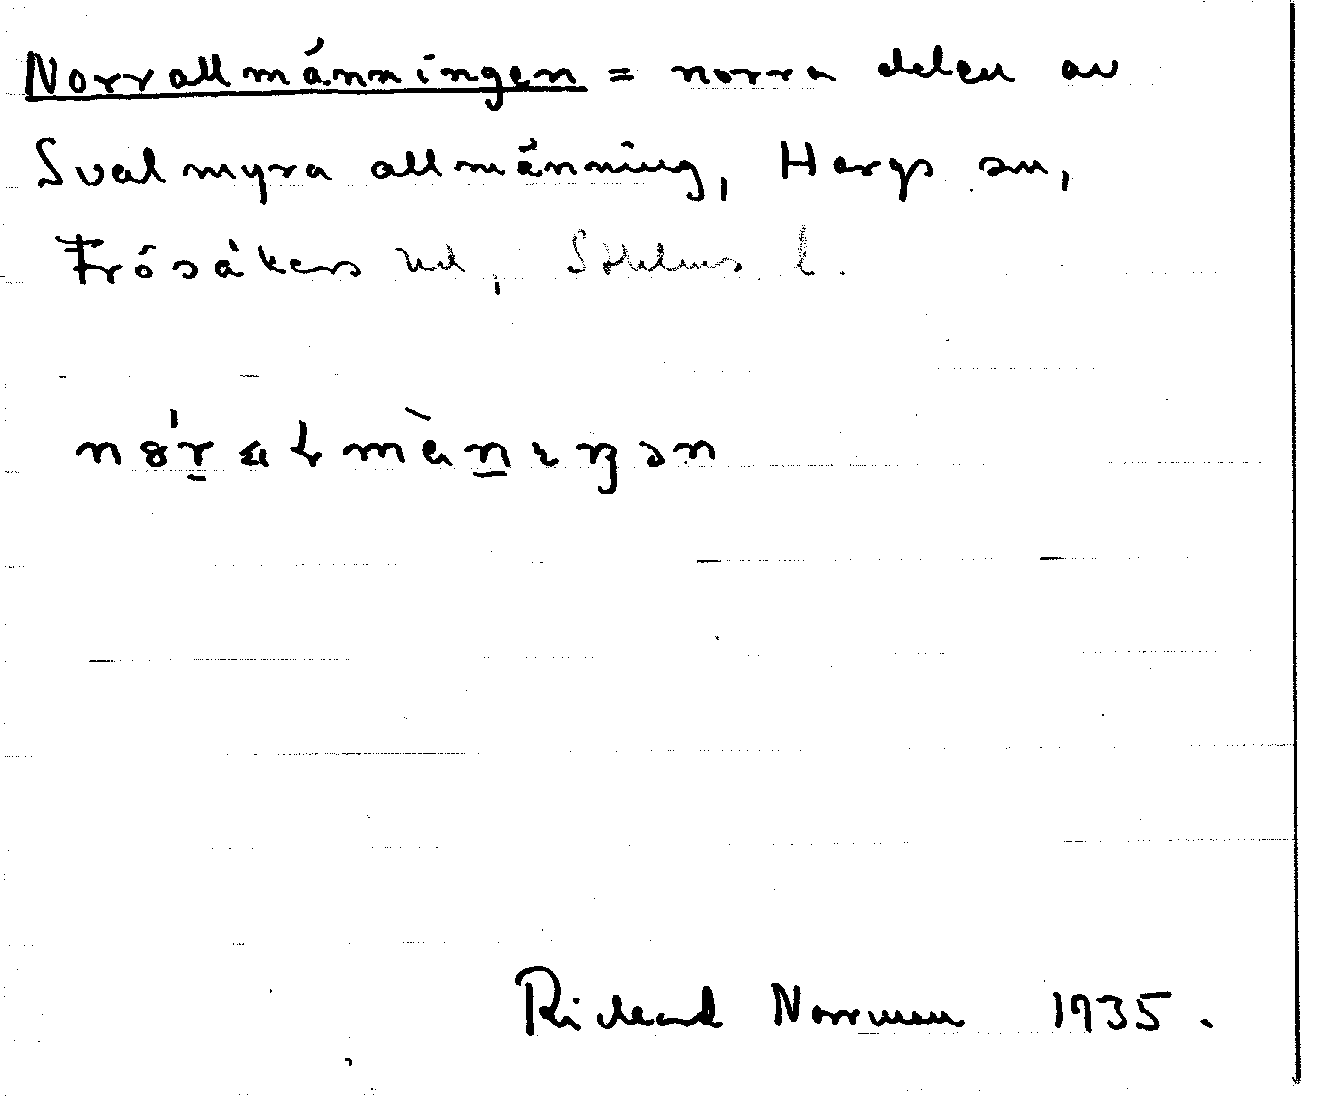 Norrallmänningen = norra delen av
Svalmyra allmänning, Hargs sn,
Frösåkers hd, Sthlms l.
Rickard Norrman 1935.